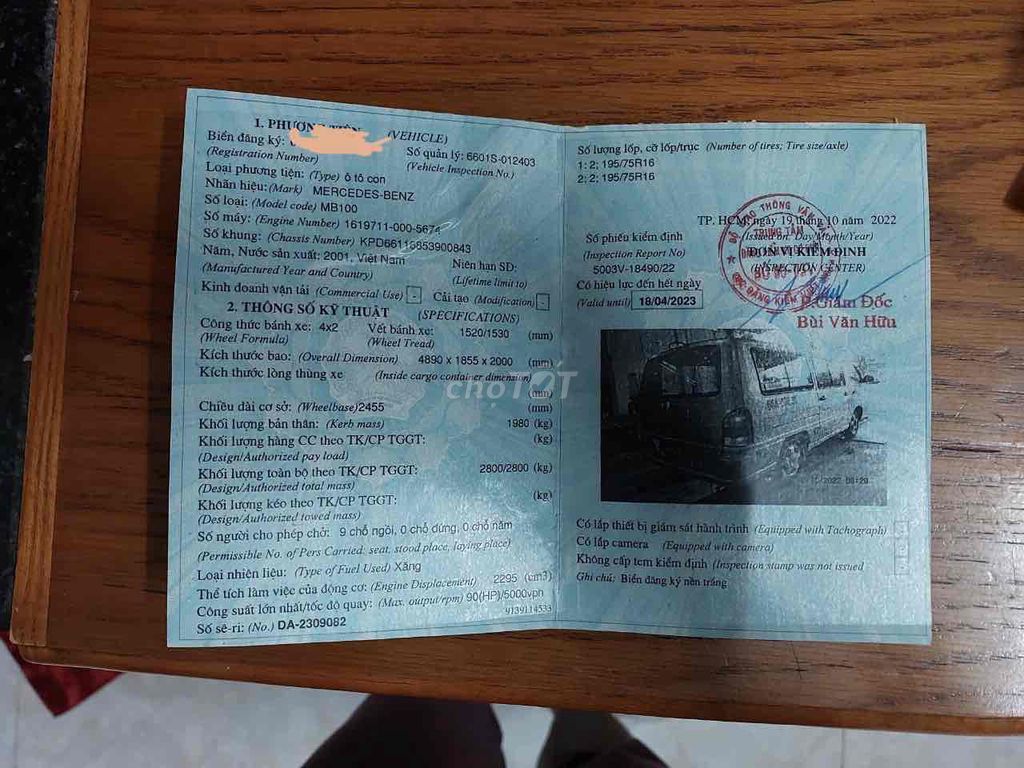 1. PHƯƠNG TIỆN (VEHICLE)
Biển đăng ký:
(Registration Number)
Số quản lý: 6601S-012403
(Vehicle Inspection No.)
Loại phương tiện: (Type) ô tô con
Nhãn hiệu: (Mark) MERCEDES-BENZ
Số loại: (Model code) MB100
Số máy: (Engine Number) 1619711-000-5674
Số khung: (Chassis Number) KPD66116553900843
Năm, Nước sản xuất: 2001, Việt Nam
(Manufactured Year and Country)
Niên hạn SD:
(Lifetime limit to)
Kinh doanh vận tải (Commercial Use) - Cải tạo (Modification) -
2. THÔNG SỐ KỸ THUẬT (SPECIFICATIONS)
Công thức bánh xe: 4x2 Vết bánh xe: 1520/1530 (mm)
(Wheel Formula) (Wheel Tread)
Kích thước bao: (Overall Dimension) 4890 x 1855 x 2000 (mm)
Kích thước lòng thùng xe (Inside cargo container dimension)
(mm)
Chiều dài cơ sở: (Wheelbase) 2455 (mm)
Khối lượng bản thân: (Kerb mass) 1980 (kg)
Khối lượng hàng CC theo TK/CP TGGT: (kg)
(Design/Authorized pay load)
Khối lượng toàn bộ theo TK/CP TGGT: 2800/2800 (kg)
(Design/Authorized total mass)
Khối lượng kéo theo TK/CP TGGT: (kg)
(Design/Authorized towed mass)
Số người cho phép chở: 9 chỗ ngồi, 0 chỗ đứng, 0 chỗ nằm
(Permissible No. of Pers Carried: seat, stood place, laying place)
Loại nhiên liệu: (Type of Fuel Used) Xăng
Thể tích làm việc của động cơ: (Engine Displacement) 2295 (cm3)
Công suất lớn nhất/tốc độ quay: (Max. output/rpm) 90(HP)/5000vph
9139114533
Số sê-ri: (No.) DA-2309082
Số lượng lốp, cỡ lốp/trục (Number of tires; Tire size/axle)
1: 2; 195/75R16
2: 2; 195/75R16
TP. HCM, ngày 19 tháng 10 năm 2022
(Issued on: Day/Month/Year)
Số phiếu kiểm định
(Inspection Report No)
5003V-18490/22
ĐƠN VỊ KIỂM ĐỊNH
(INSPECTION CENTER)
Có hiệu lực đến hết ngày
(Valid until) 18/04/2023
P.Giám Đốc
Bùi Văn Hữu
TRUNG TÂM
CỤC ĐĂNG KIỂM
chợTỐT
2022 08:20
Có lắp thiết bị giám sát hành trình (Equipped with Tachograph)
Có lắp camera (Equipped with camera)
Không cấp tem kiểm định (Inspection stamp was not issued
Ghi chú: Biển đăng ký nền trắng